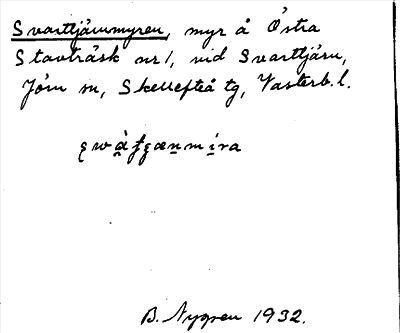 Svarttjärnmyren, myr å Östra
Stavträsk nr 1, vid Svarttjärn,
Jörn sn, Skellefteå tg, Västerb. l.
B. Nygren 1932.